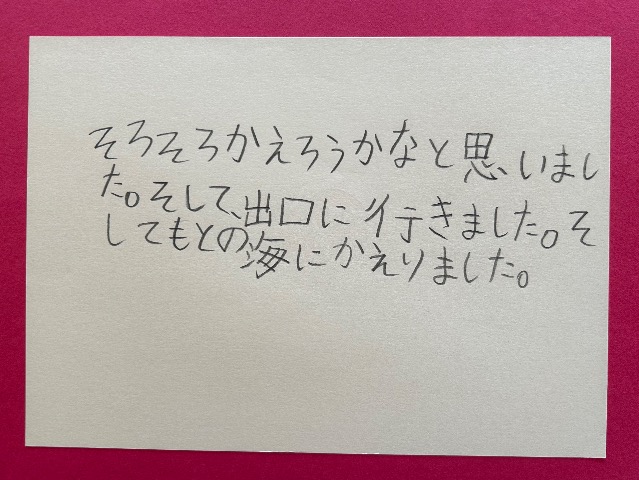 そろそろかえろうかなと思いまし
た。そして、出口に行きました。そ
してもとの海にかえりました。